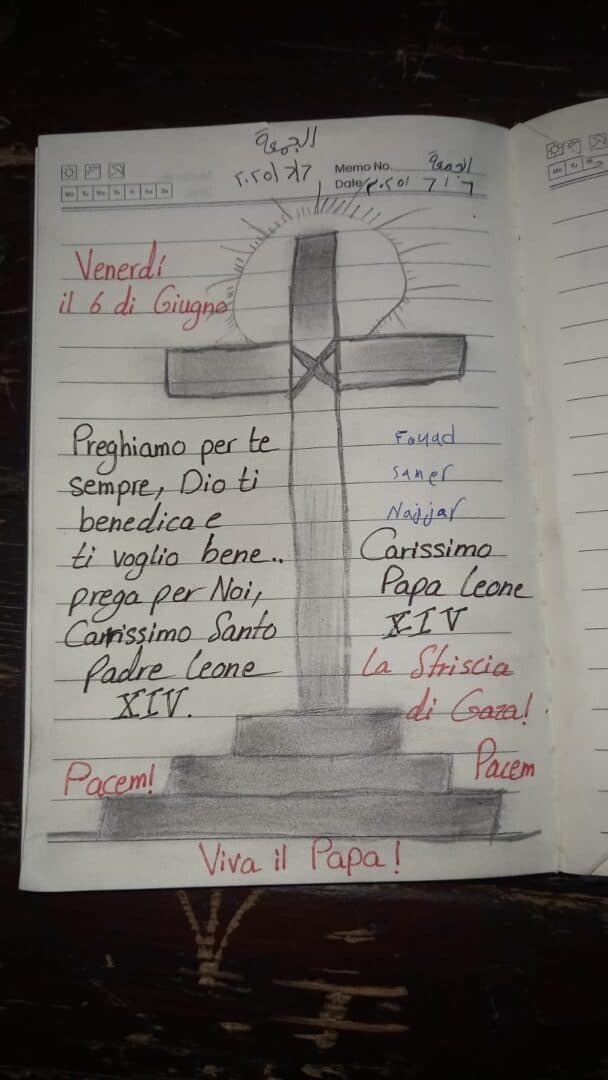 الجمعة
٢٠٢٥/٦/٦
Memo No. الجمعة
Mo Tu We Th Fr Sa Su
Date ٢٠٢٥/٦/٦
Venerdí
il 6 di Giugno
Preghiamo per te
sempre, Dio ti
benedica e
ti voglio bene..
prega per Noi,
Carrissimo Santo
Padre Leone
XIV.
Fouad
Samer
Najjar
Carissimo
Papa Leone
XIV
La Striscia
di Gaza!
Pacem!
Pacem
Viva il Papa!
Mo Tu